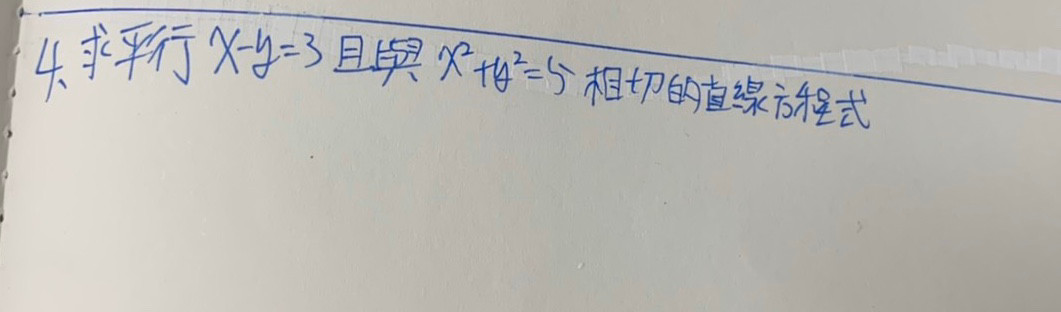 4、求平行 x-y=3 且與 x²+y²=5 相切的直線方程式